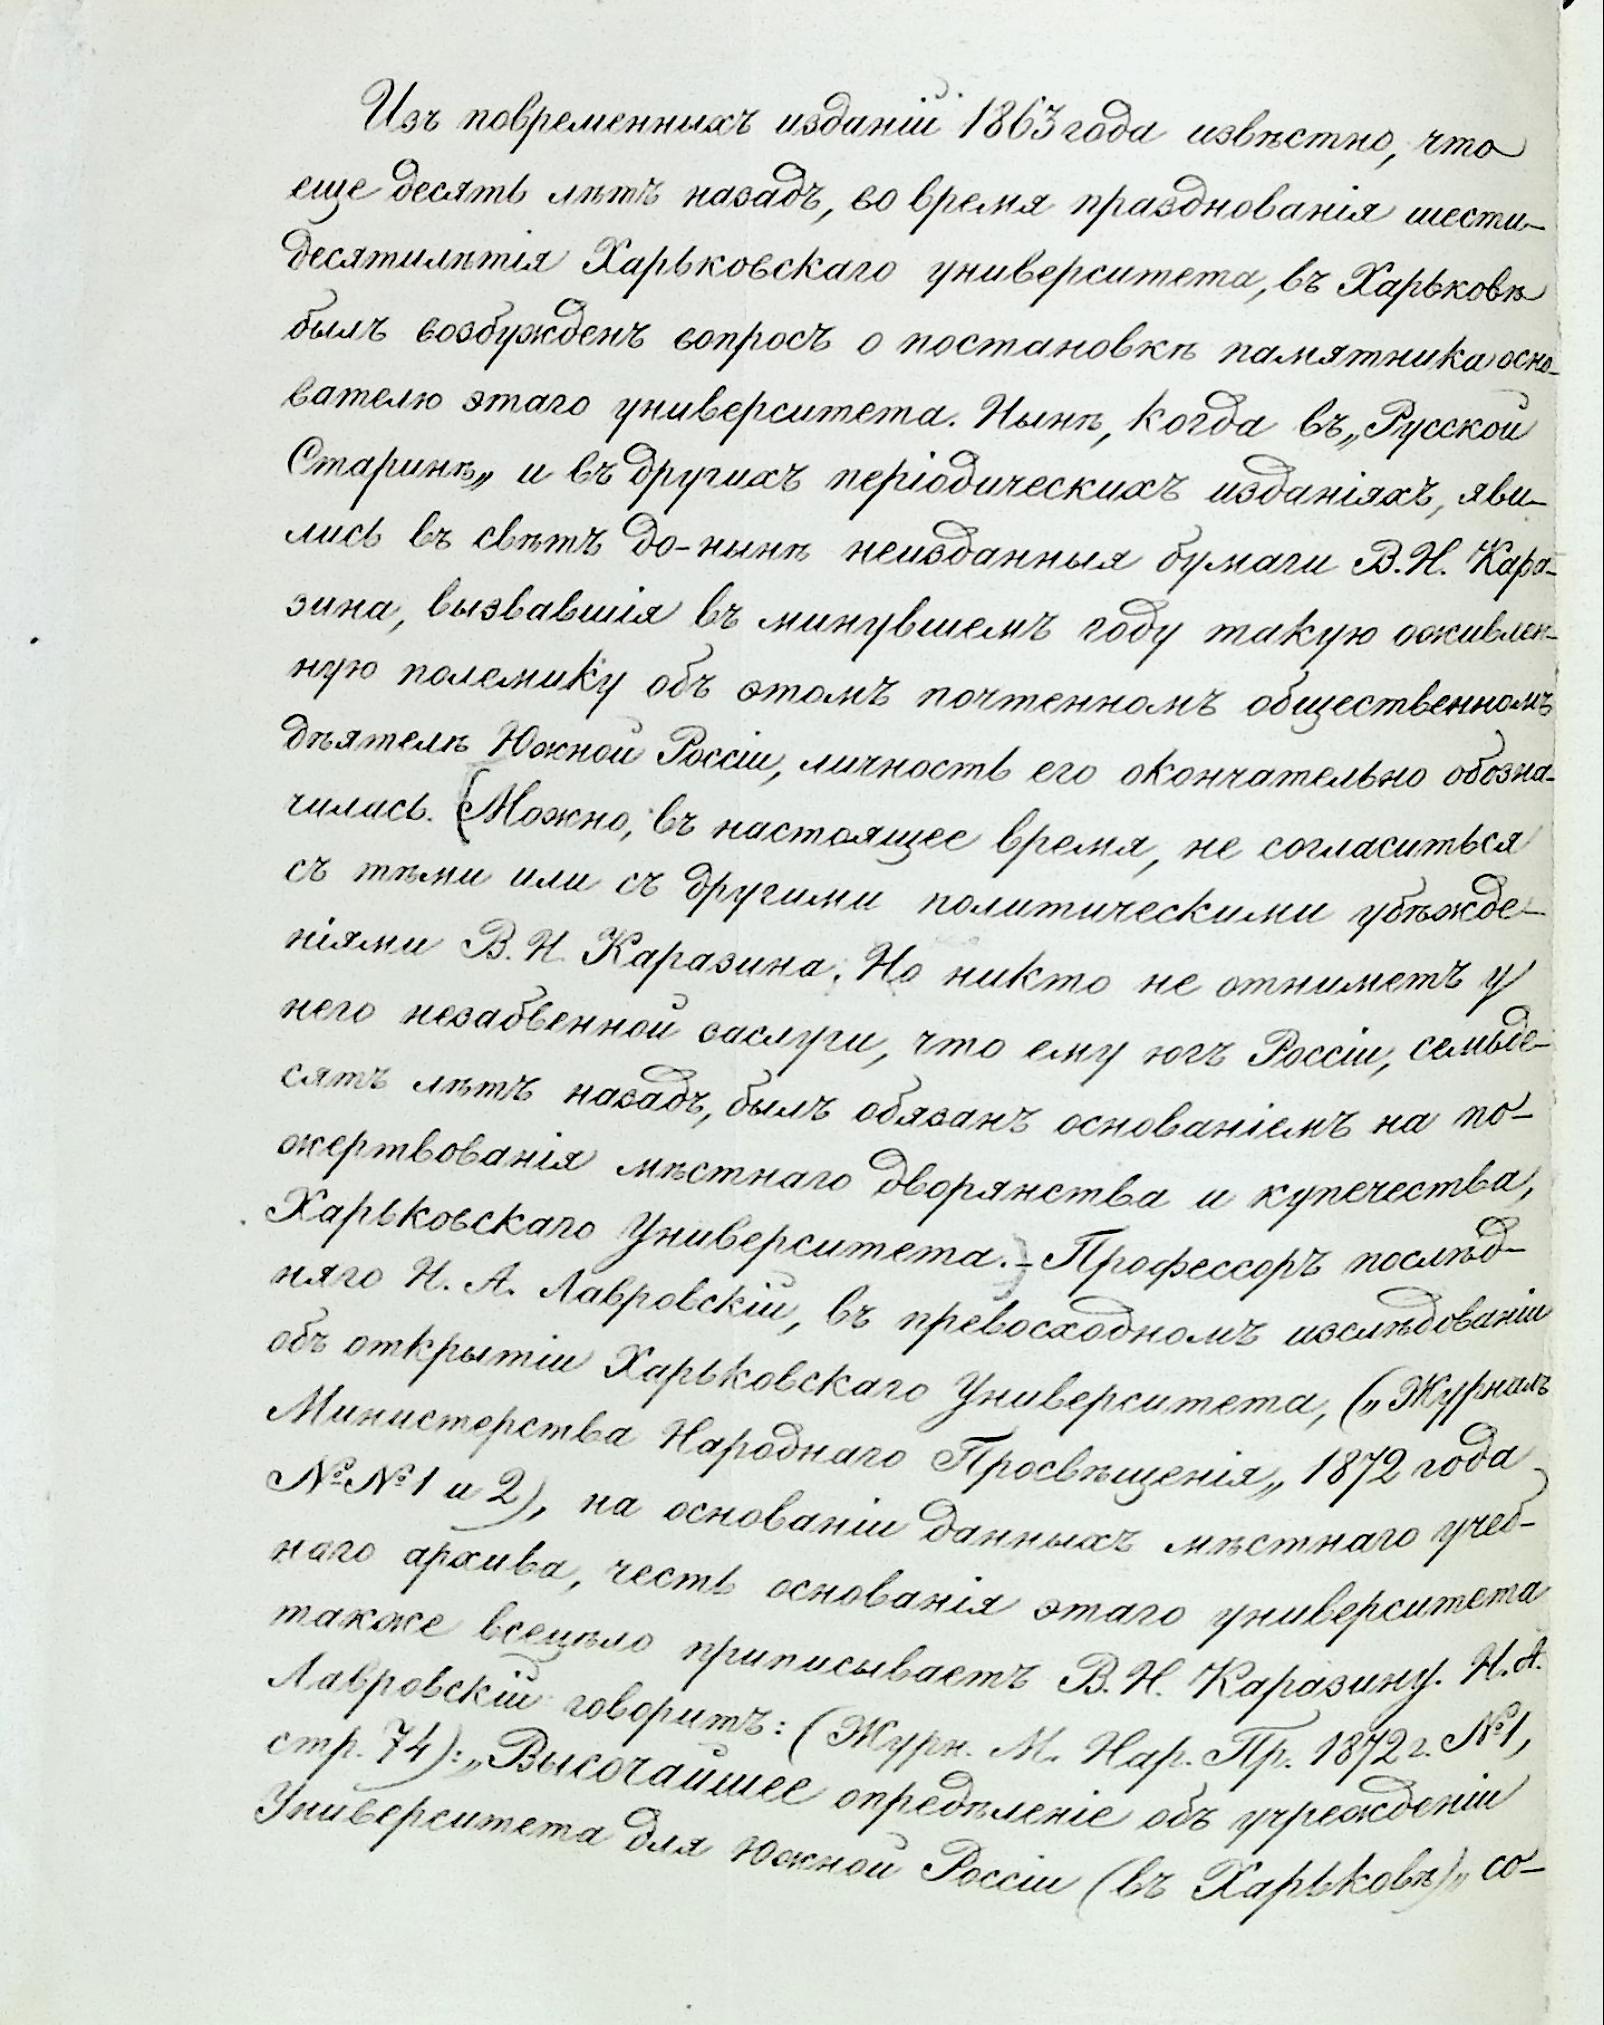 Изъ повременныхъ изданій 1863 года извѣстно, что
еще десять лѣтъ назадъ, во время празднованія шести-
десятилѣтія Харьковскаго университета, въ Харьковѣ
былъ возбужденъ вопросъ о постановкѣ памятника осно-
вателю этаго университета. Нынѣ, когда въ „Русской
Старинѣ„ и въ другихъ періодическихъ изданіяхъ, яви-
лись въ свѣтъ до-нынѣ неизданныя бумаги В. Н. Кара-
зина, вызвавшія въ минувшемъ году такую оживлен-
ную полемику объ этомъ почтенномъ общественномъ
дѣятелѣ Южной Россіи, личность его окончательно обозна-
чилась. (Можно, въ настоящее время, не согласиться
съ тѣми или съ другими политическими убѣжде-
ніями В. Н. Каразина. Но никто не отниметъ у
него незабвенной заслуги, что ему югъ Россіи, семьде-
сятъ лѣтъ назадъ, былъ обязанъ основаніемъ на по-
жертвованія мѣстнаго дворянства и купечества,
Харьковскаго Университета.)- Профессоръ послѣд-
няго Н. А. Лавровскій, въ превосходномъ изслѣдованіи
объ открытіи Харьковскаго Университета, („Журналъ
Министерства Народнаго Просвѣщенія„ 1872 года
№№ 1 и 2), на основаніи данныхъ мѣстнаго учеб-
наго архива, честь основанія этаго университета
также всецѣло приписываетъ В. Н. Каразину. Н. А.
Лавровскій говоритъ: (Журн. М. Нар. Пр. 1872 г. № 1,
стр. 74): „Высочайшее опредѣленіе объ учрежденіи
Университета для Южной Россіи (въ Харьковѣ)„ со-